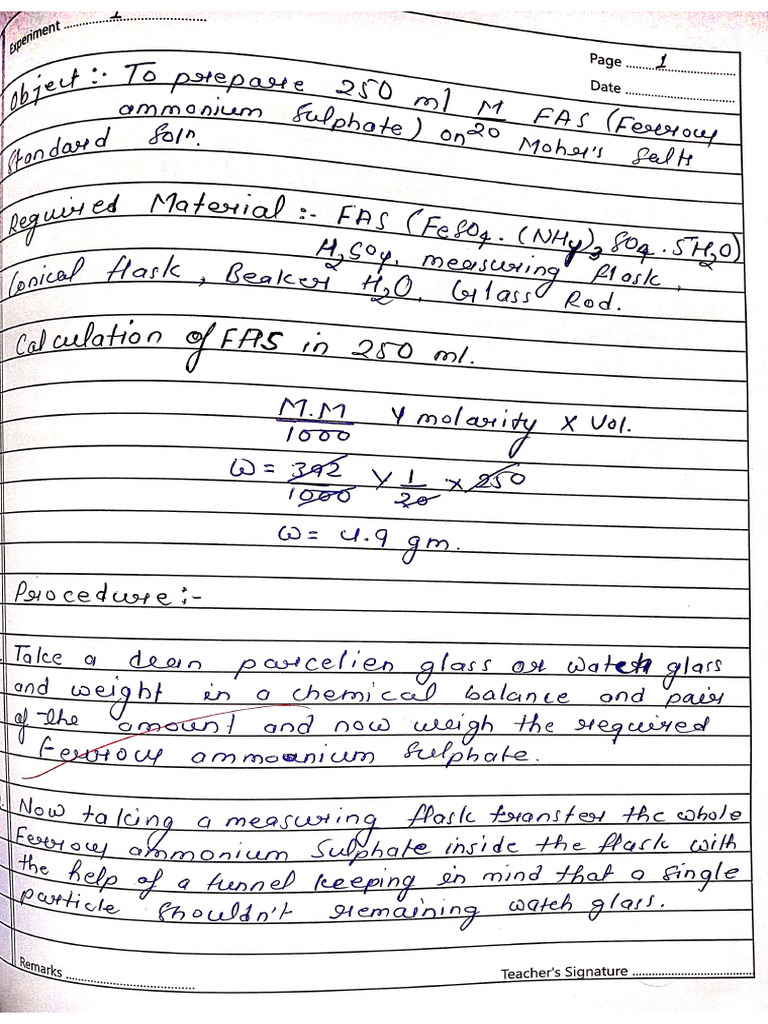 Experiment 1
Page 1
Date
Object:- To prepare 250 ml M/20 FAS (Ferrous
ammonium Sulphate) on Mohr's Salt
Standard Soln.
Required Material :- FAS (FeSO4.(NH4)3SO4.5H2O)
H2SO4, measuring flask,
Conical flask, Beaker H2O, Glass Rod.
Calculation of FAS in 250 ml.
M.M/1000 × molarity × Vol.
W = 392/1000 × 1/20 × 250
W = 4.9 gm.
Procedure:-
Take a clean parcelien glass or watch glass
and weight in a chemical balance and pair
of the amount and now weigh the required
Ferrous ammonium Sulphate.
Now taking a measuring flask transfer the whole
Ferrous ammonium Sulphate inside the flask with
the help of a funnel keeping in mind that a single
particle shouldn't remaining watch glass.
Remarks
Teacher's Signature